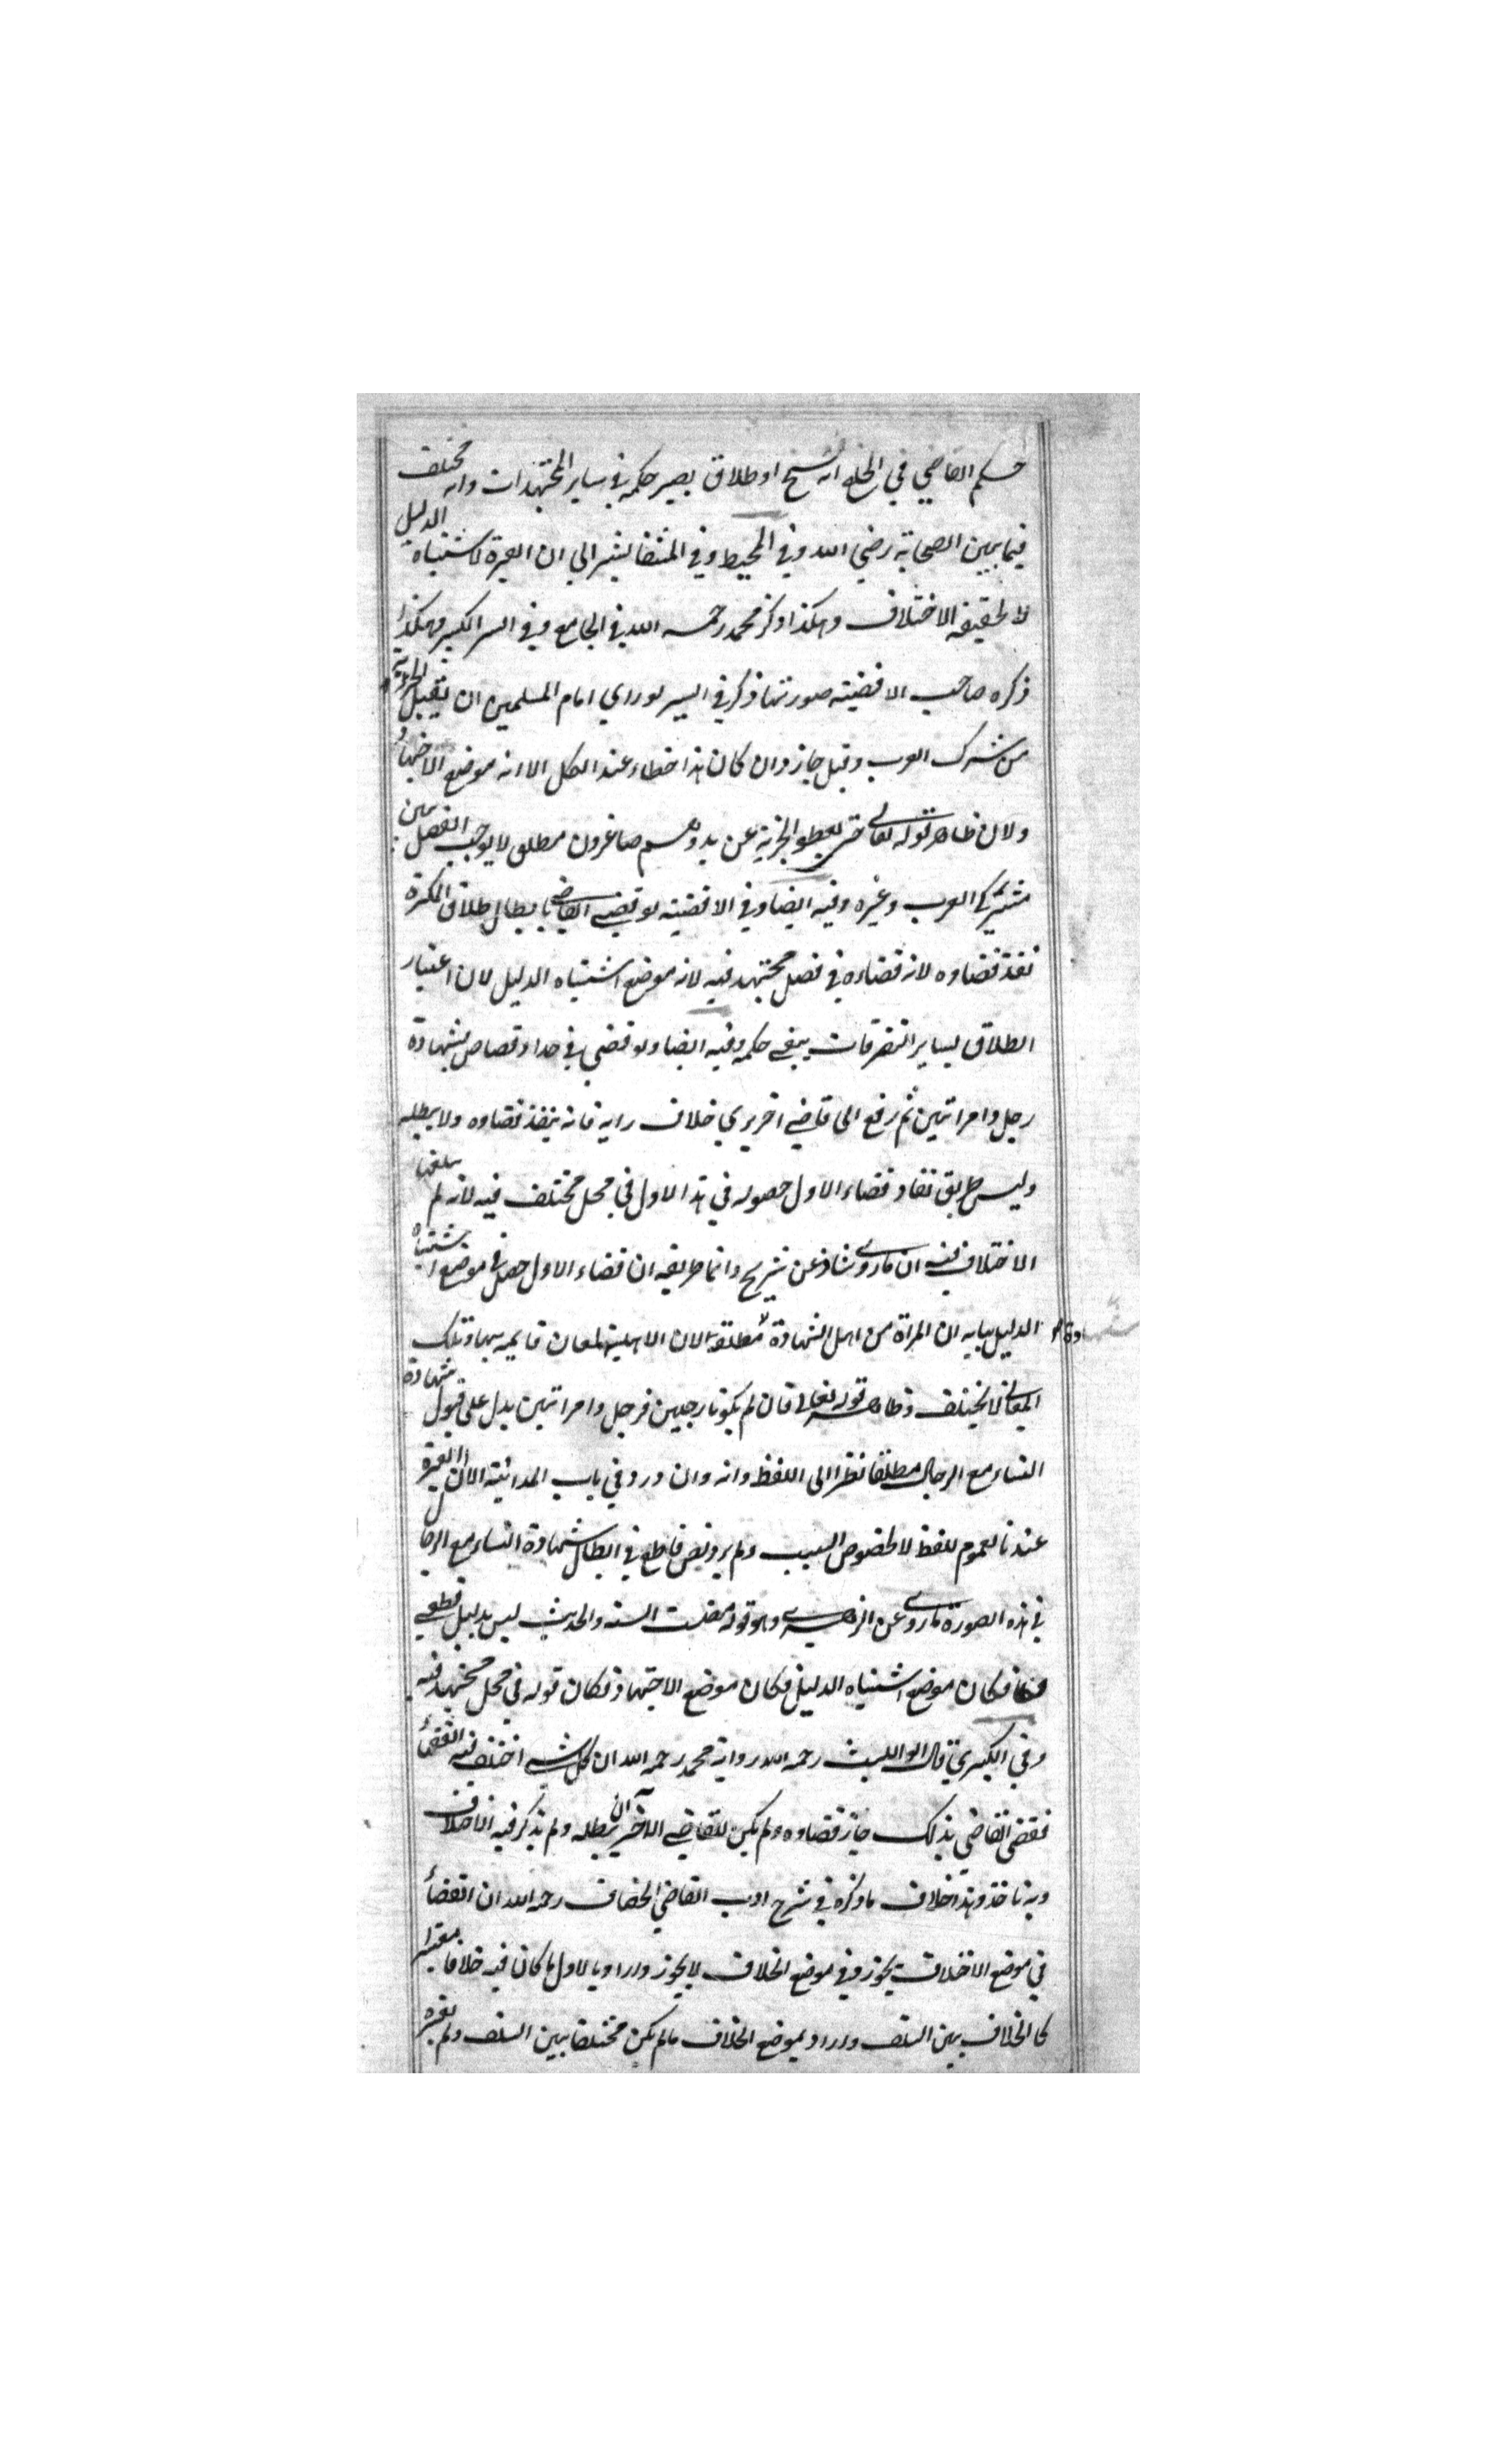 حكم القاضي في الخلع انه فسخ او طلاق يصير حكمه في ساير المجتهدات وانه مختلف
فيما بين الصحابة رضي الله وفي المحيط وفي المنتقا يشير الي ان العبرة لاشتباه الدليل
لا لحقيقة الاختلاف وهكذا ذكر محمد رحمه الله في الجامع وفي السير الكبير وهكذا
ذكره صاحب الاقضية صورتها ذكر في السير لو راي امام المسلمين ان يقبل الجزية
من مشرك العرب وقبل جاز وان كان هذا خطاء عند الكل الا انه موضع الاجتهاد
ولان ظاهر قوله تعالى حتى يعطوا الجزية عن يد وهم صاغرون مطلق لا يوجب الفصل بين
مشركي العرب وغيره وفيه ايضا وفي الاقضية لو قضى القاضي بابطال طلاق المكره
نفذ قضاوه لانه قضاءه في فصل مجتهد فيه لانه موضع اشتباه الدليل لان اعتبار
الطلاق بساير التصرفات ينفي حكمه وفيه ايضا ولو قضى في حد او قصاص بشهادة
رجل وامراتين ثم رفع الى قاضي اخر يري خلاف رايه فانه ينفذ قضاوه ولا يبطله
وليس طريق نفاد قضاء الاول حصوله في هذا الاول في محل مختلف فيه لانه لم يبلغنا
الاختلاف فيه ان ما روى شاذ عن شريح وانما طريقه ان قضاء الاول حصل في موضع اشتباه
الدليل بيانه ان المراة من اهل الشهادة مطلقا لان الاهلية لمعان قايمة بها وتلك
المعاني لا تختلف وظاهر قوله تعالى فان لم يكونا رجلين فرجل وامراتين يدل على قبول شهادة
النساء مع الرجال مطلقا نظرا الى اللفظ وانه وان ورد في باب المداينة الا ان العبرة
عندنا لعموم للفظ لا لخصوص السبب ولم يرد نص قاطع في ابطال شهادة النساء مع الرجال
في هذه الصورة ما روى عن الزهري وهو قوله مضت السنه والحديث ليس بدليل قطعي
فكان موضع اشتباه الدليل فكان موضع الاجتهاد فكان قوله في محل مجتهد فيه
وفي الكبري قال ابو الليث رحمه الله رواية محمد رحمه الله ان كل شي اختلف فيه الفقهأ
فقضى القاضي بذلك جاز قضاوه ولم يكن للقاضي الاخر ان يبطله ولم يذكر فيه الاختلاف
وبه ناخذ وهذا خلاف ما ذكره في شرح ادب القاضي الخصاف رحمه الله ان القضأ
في موضع الاختلاف يجوز وفي موضع الخلاف لا يجوز واراد بالاول ما كان فيه خلافا معتبرا
كالخلاف بين السلف واراد بموضع الخلاف ما لم يكن مختلفا بين السلف ولم يعتبر